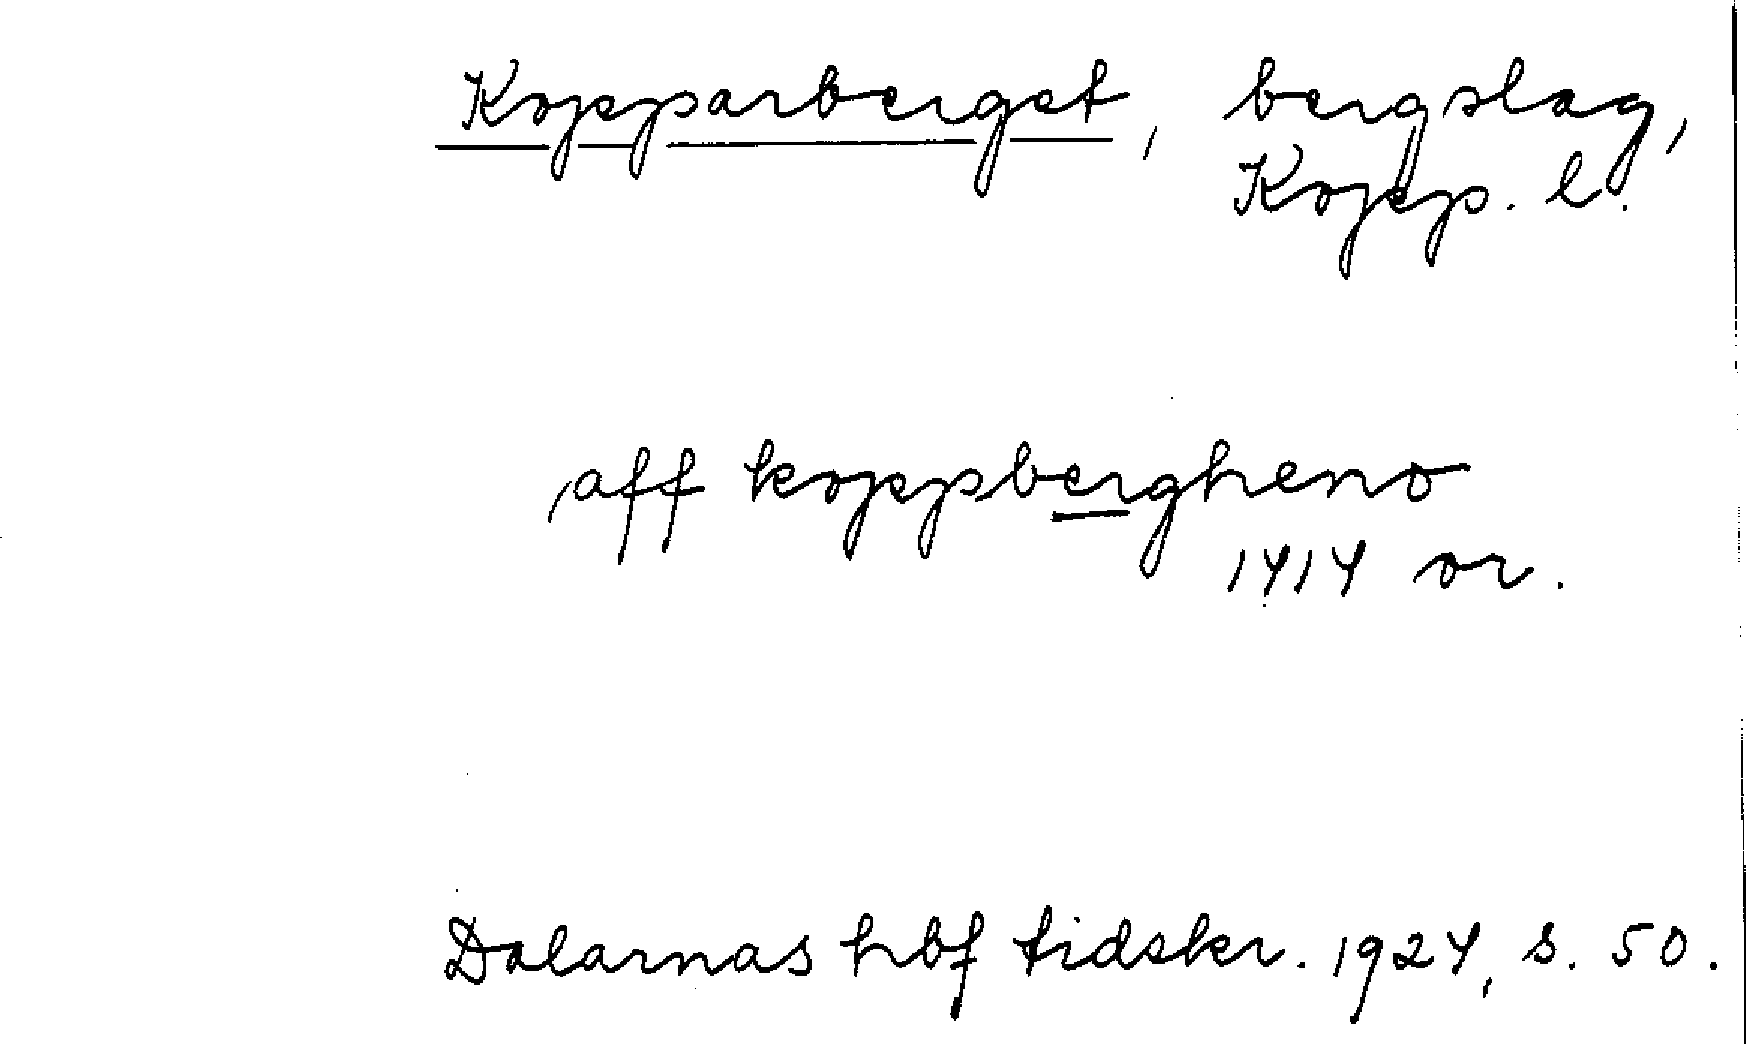 Kopparberget, bergslag,
Kopp. l.
,aff koppbergheno
1414 or.
Dalarnas hbf tidskr. 1924, s. 50.